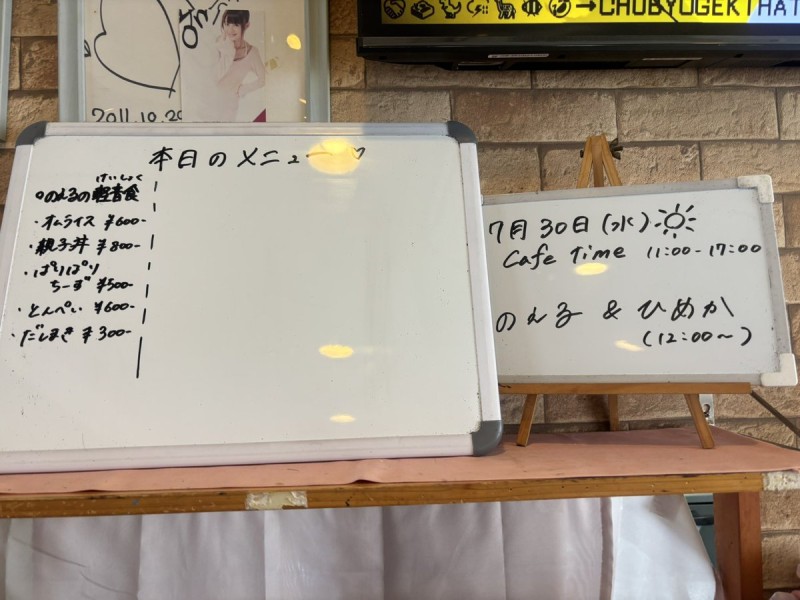 2011.10.20
本日のメニュー♡
けいしょく
○のえるの軽食
・オムライス ¥600-
・親子丼 ¥800-
・ぱりぱり
ちーず ¥500-
・とんぺい ¥600-
・だしまき ¥300-
7月30日(水)
Cafe Time 11:00-17:00
のえる & ひめか
(12:00~)